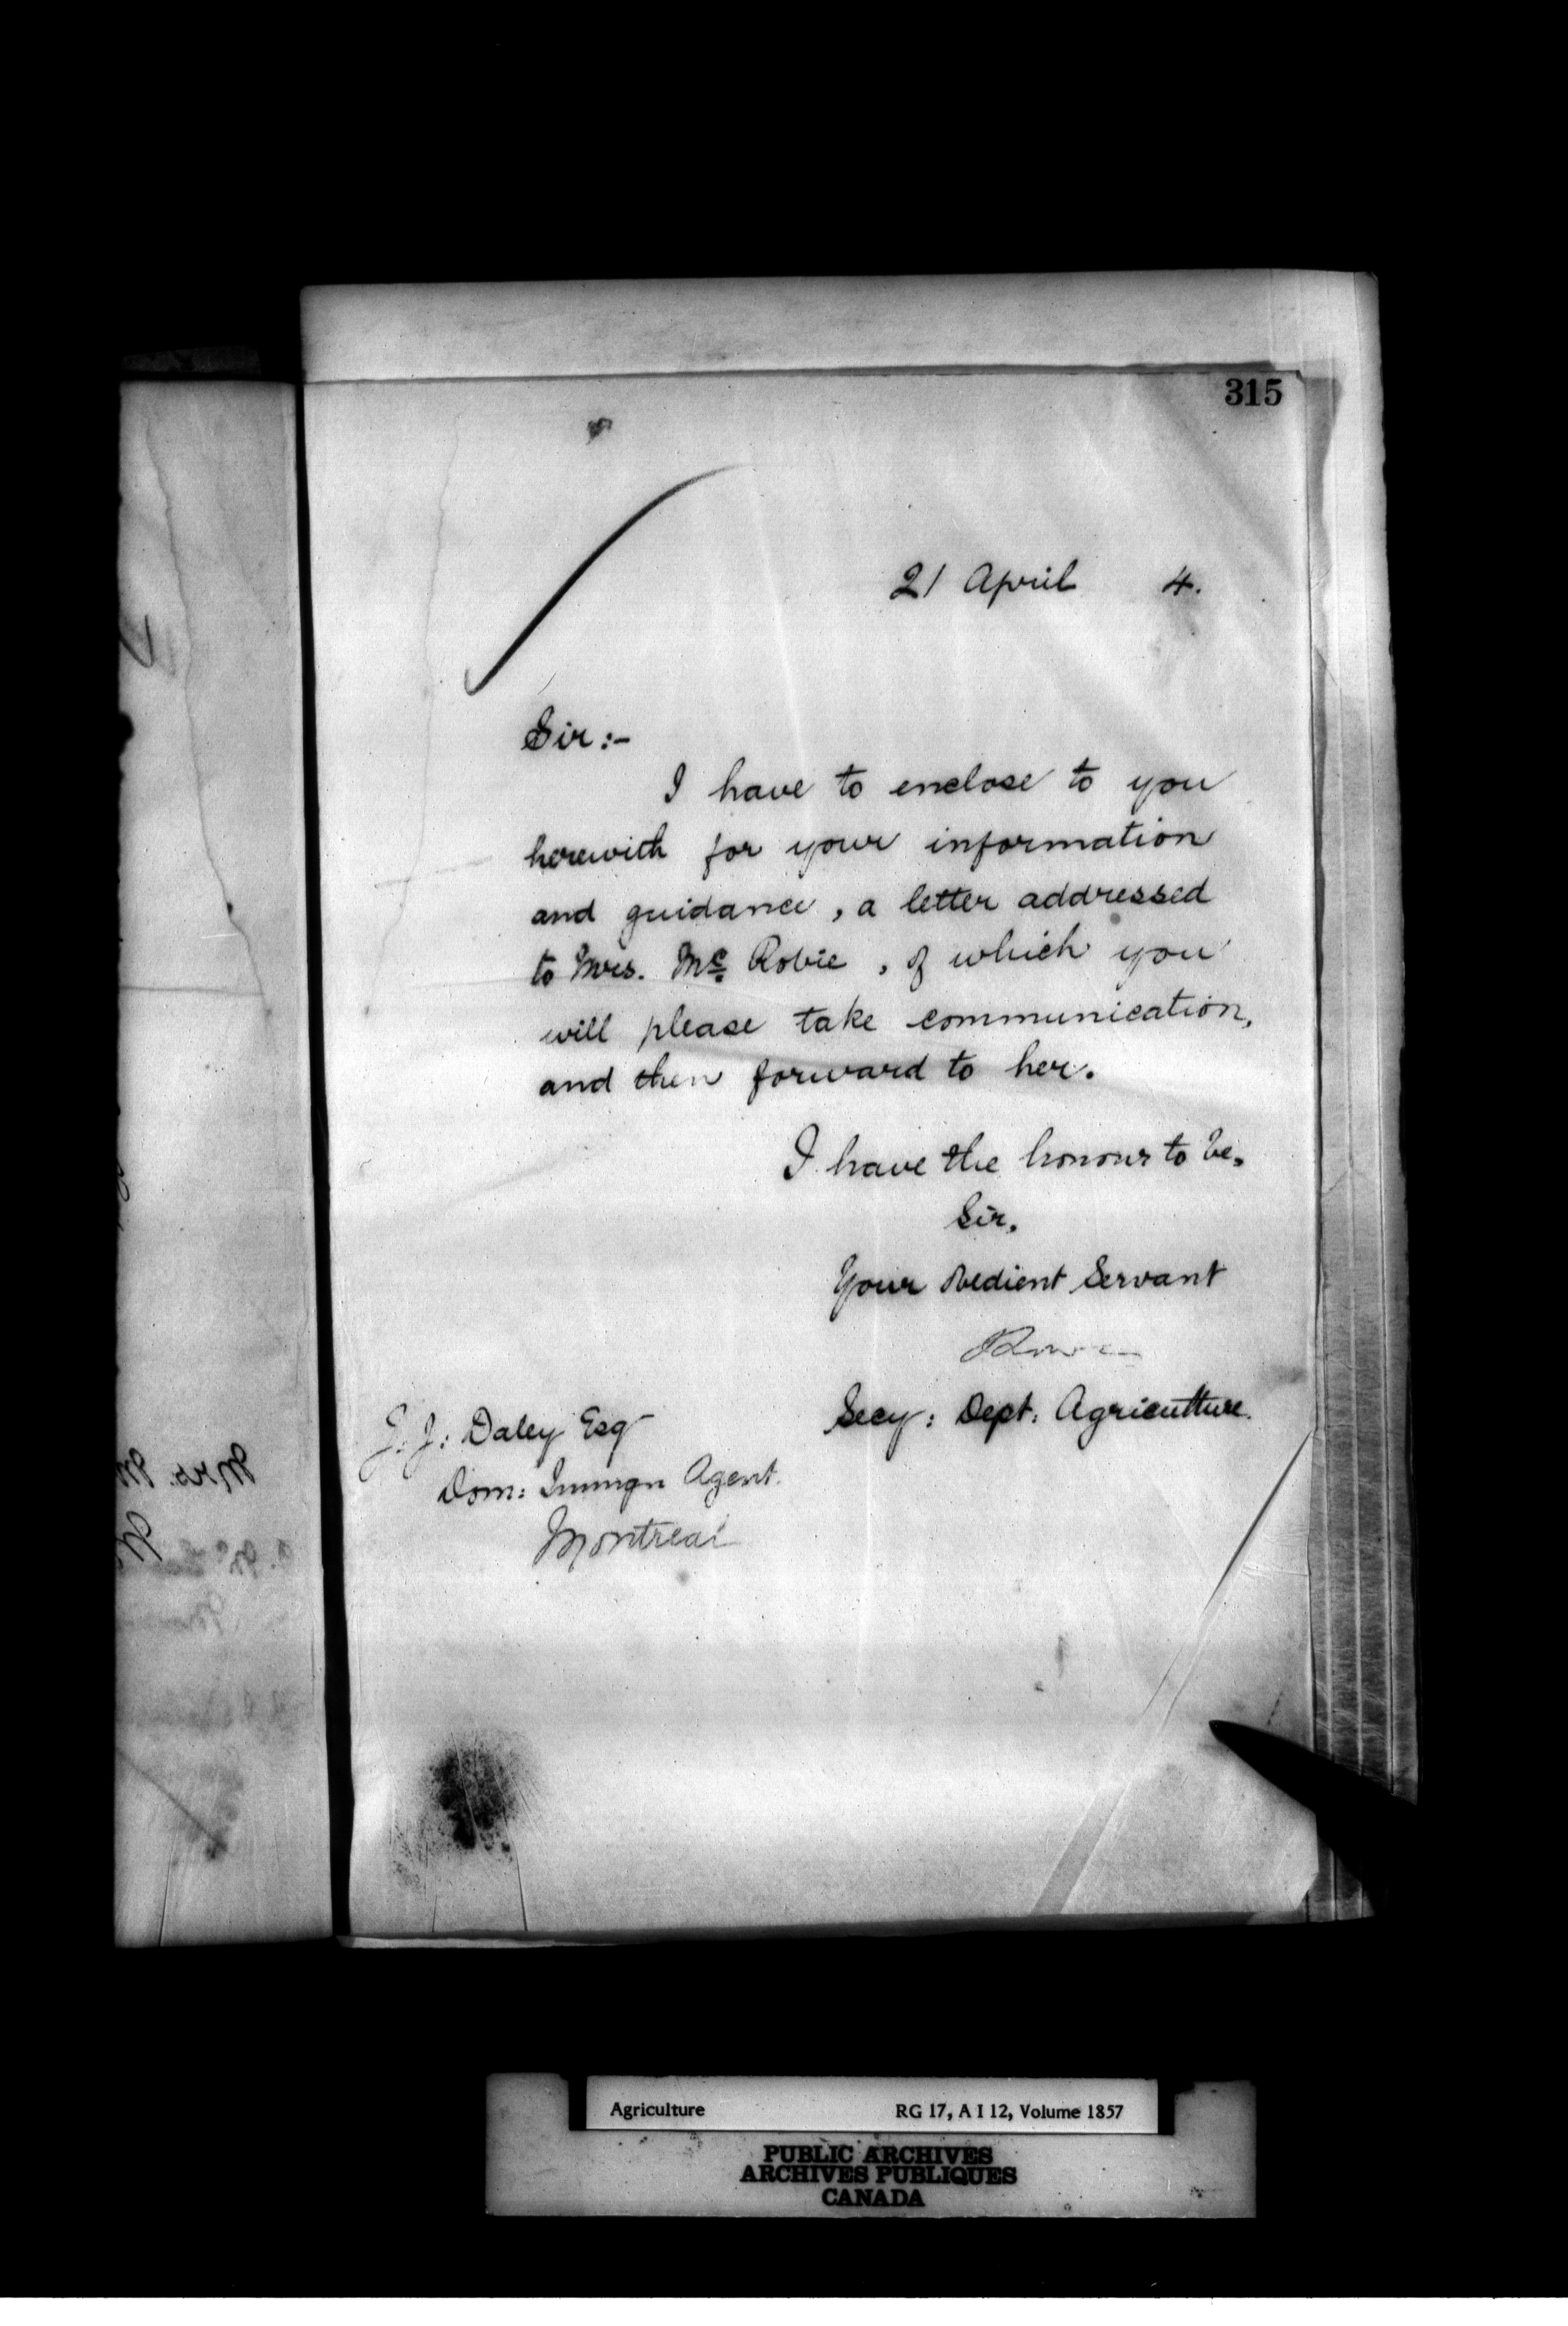 315
21 April 4.
Sir:-
I have to enclose to you
herewith for your information
and guidance, a letter addressed
to Mrs. Mc Robie, of which you
will please take communication,
and then forward to her.
I have the honour to be,
Sir,
Your Obedient Servant
Secy: Dept: Agriculture.
J. J: Daley Esq
Dom: Immgn Agent.
Montreal
Mrs. M
Agriculture RG 17, A I 12, Volume 1857
PUBLIC ARCHIVES
ARCHIVES PUBLIQUES
CANADA